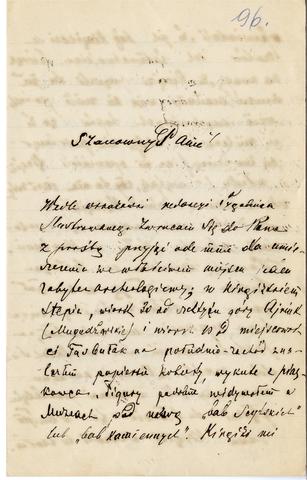 96.
Szanowny Panie!
Wedle wskazówki redakcyi Tygodnika
Mód zwracam się do Pana
z prośbą przyjąć ode mnie do umie-
szczenia we właściwem miejscu jeden
zabytek archeologiczny; w Kirgizkiem
stepie, wiorst 30 od szczytu góry Ajriuk
(Mugodżarskiej) i wiorst 10 od miejscowoś-
ci Tasbułak na południo-zachód zna-
lazłem popiersie kobiety, wykute z pias-
kowca. Figury podobne widywałem w
Muzeach pod nazwą "bab Scytskich"
lub "bab kamiennych". Kirgizi mi